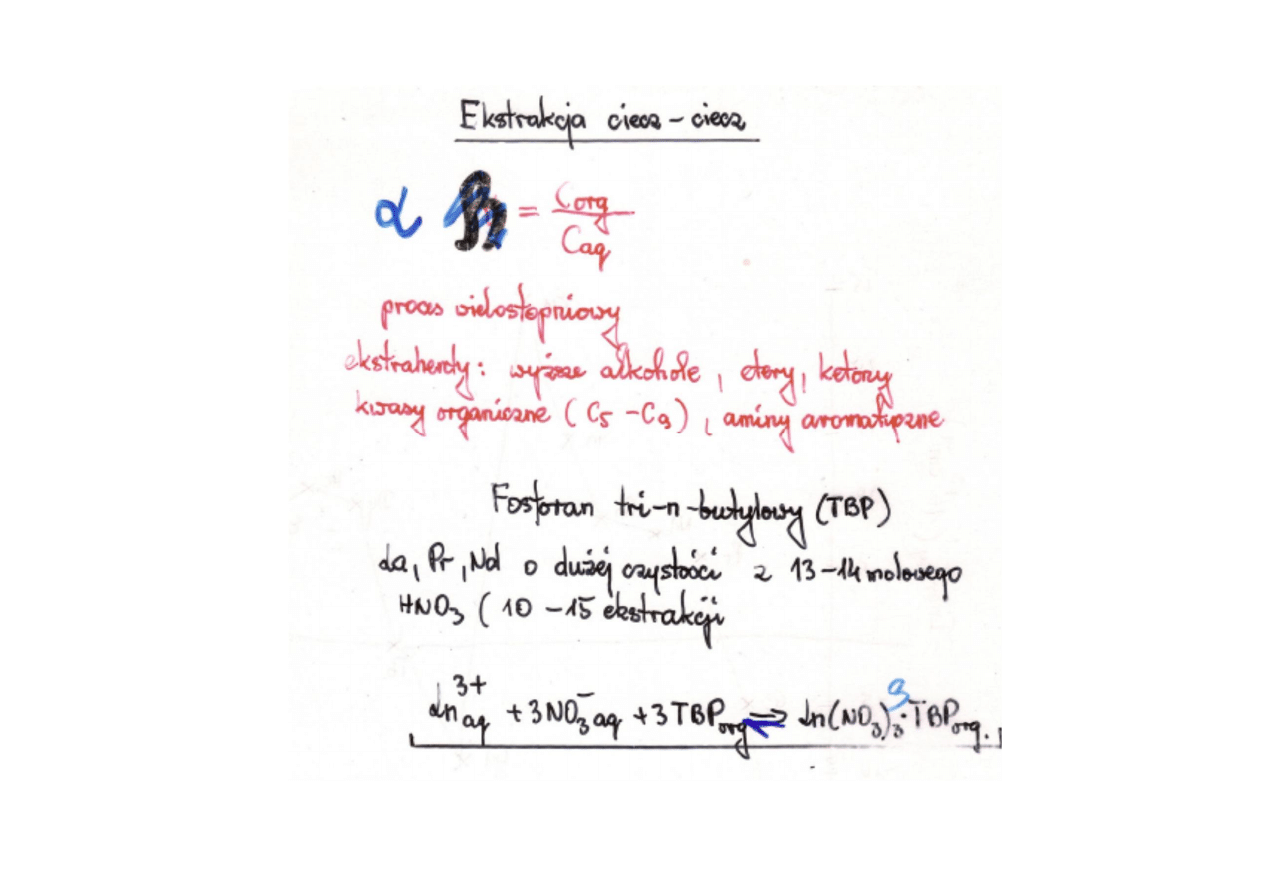 Ekstrakcja ciecz – ciecz
α = Corg / Caq
proces wielostopniowy
ekstrahenty: wyższe alkohole, etery, ketony
kwasy organiczne (C5 – C9), aminy aromatyczne
Fosforan tri-n-butylowy (TBP)
La, Pr, Nd o dużej czystości z 13–14 molowego
HNO3 (10 – 15 ekstrakcji
Ln³⁺aq + 3NO3⁻aq + 3TBPorg ⇌ Ln(NO3)3·3TBPorg.